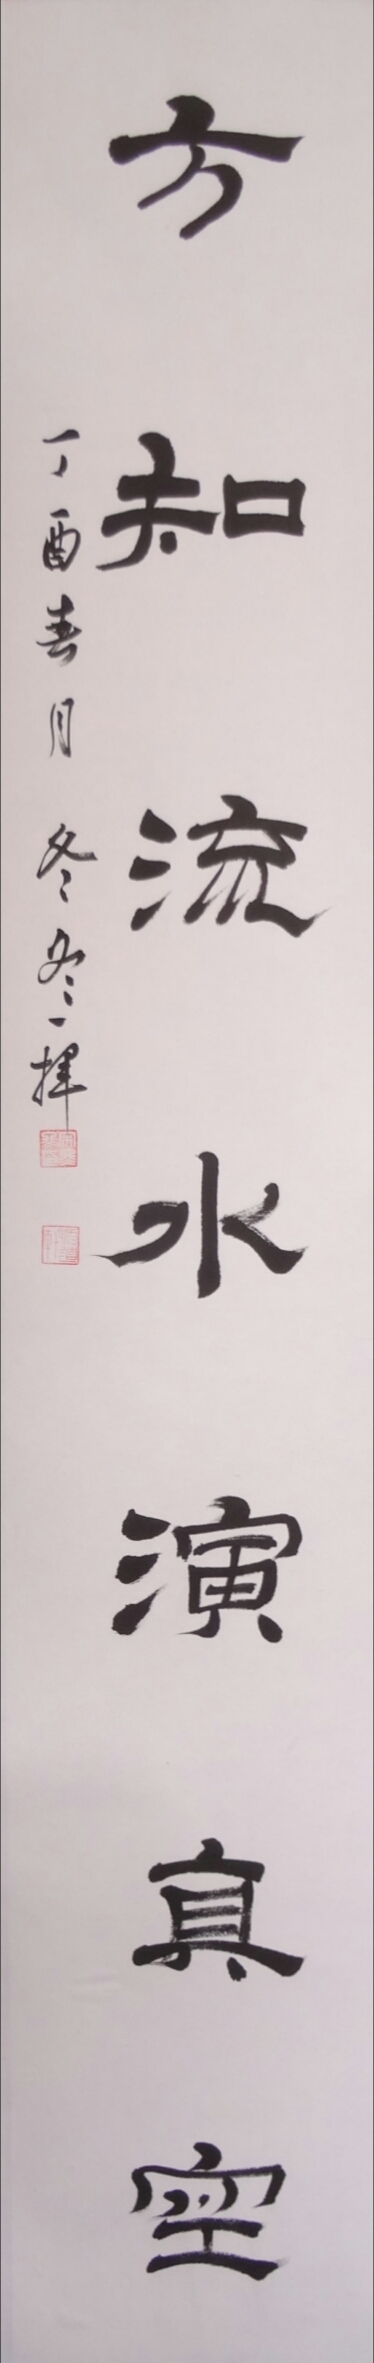 方知流水演真空
丁酉春月 冬冬一挥